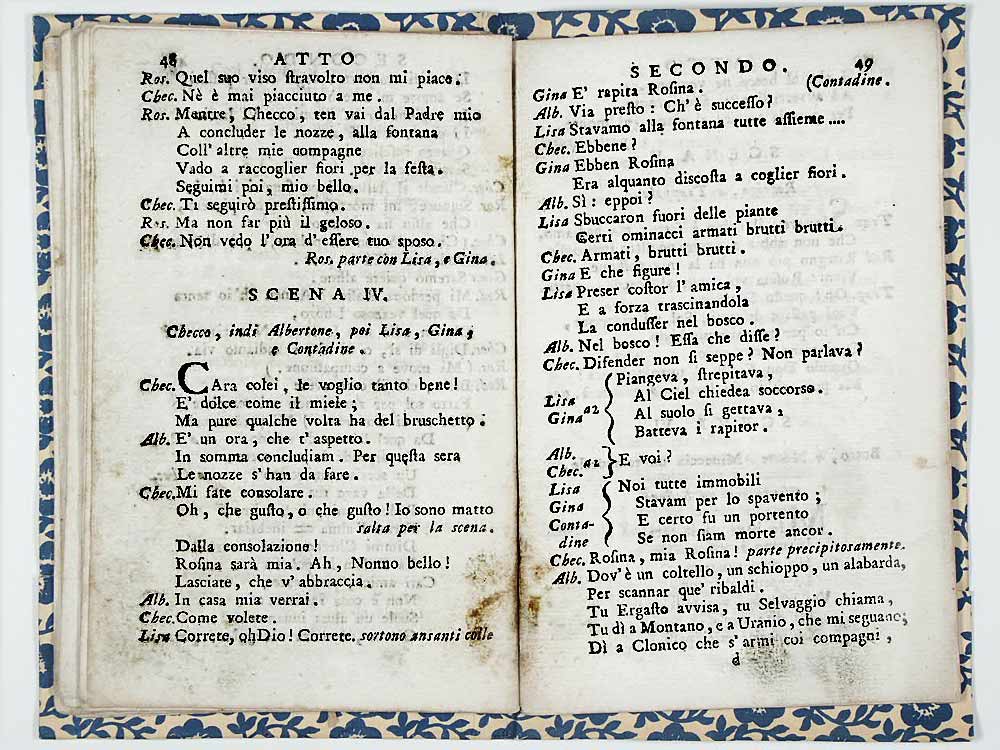 48 ATTO
Ros. Quel suo viso stravolto non mi piace.
Chec. Nè è mai piacciuto a me.
Ros. Mentre, Checco, ten vai dal Padre mio
A concluder le nozze, alla fontana
Coll' altre mie compagne
Vado a raccoglier fiori per la festa.
Seguimi poi, mio bello.
Chec. Ti seguirò prestissimo.
Ros. Ma non far più il geloso.
Chec. Non vedo l'ora d'essere tuo sposo.
Ros. parte con Lisa, e Gina.
SCENA IV.
Checco, indi Albertone, poi Lisa, Gina,
e Contadine.
Chec. CAra colei, le voglio tanto bene!
E' dolce come il miele;
Ma pure qualche volta ha del bruschetto.
Alb. E' un ora, che t'aspetto.
In somma concludiam. Per questa sera
Le nozze s'han da fare.
Chec. Mi fate consolare.
Oh, che gusto, o che gusto! Io sono matto
salta per la scena.
Dalla consolazione!
Rosina sarà mia. Ah, Nonno bello!
Lasciate, che v'abbraccia.
Alb. In casa mia verrai.
Chec. Come volete.
Lisa Correte, oh Dio! Correte. sortono ansanti colle
SECONDO. 49
(Contadine.
Gina E' rapita Rosina.
Alb. Via presto: Ch'è successo?
Lisa Stavamo alla fontana tutte assieme....
Chec. Ebbene?
Gina Ebben Rosina
Era alquanto discosta a coglier fiori.
Alb. Sì: eppoi?
Lisa Sbuccaron fuori delle piante
Certi ominacci armati brutti brutti.
Chec. Armati, brutti brutti.
Gina E che figure!
Lisa Preser costor l'amica,
E a forza trascinandola
La condusser nel bosco.
Alb. Nel bosco! Essa che disse?
Chec. Difender non si seppe? Non parlava?
Lisa Gina a2 { Piangeva, strepitava,
Al Ciel chiedea soccorso.
Al suolo si gettava,
Batteva i rapitor.
Alb. Chec. a2 } E voi?
Lisa Gina Contadine { Noi tutte immobili
Stavam per lo spavento;
E certo fu un portento
Se non siam morte ancor.
Chec. Rosina, mia Rosina! parte precipitosamente.
Alb. Dov'è un coltello, un schioppo, un alabarda,
Per scannar que' ribaldi.
Tu Ergasto avvisa, tu Selvaggio chiama,
Tu dì a Montano, e a Uranio, che mi seguano;
Dì a Clonico che s'armi coi compagni,
d